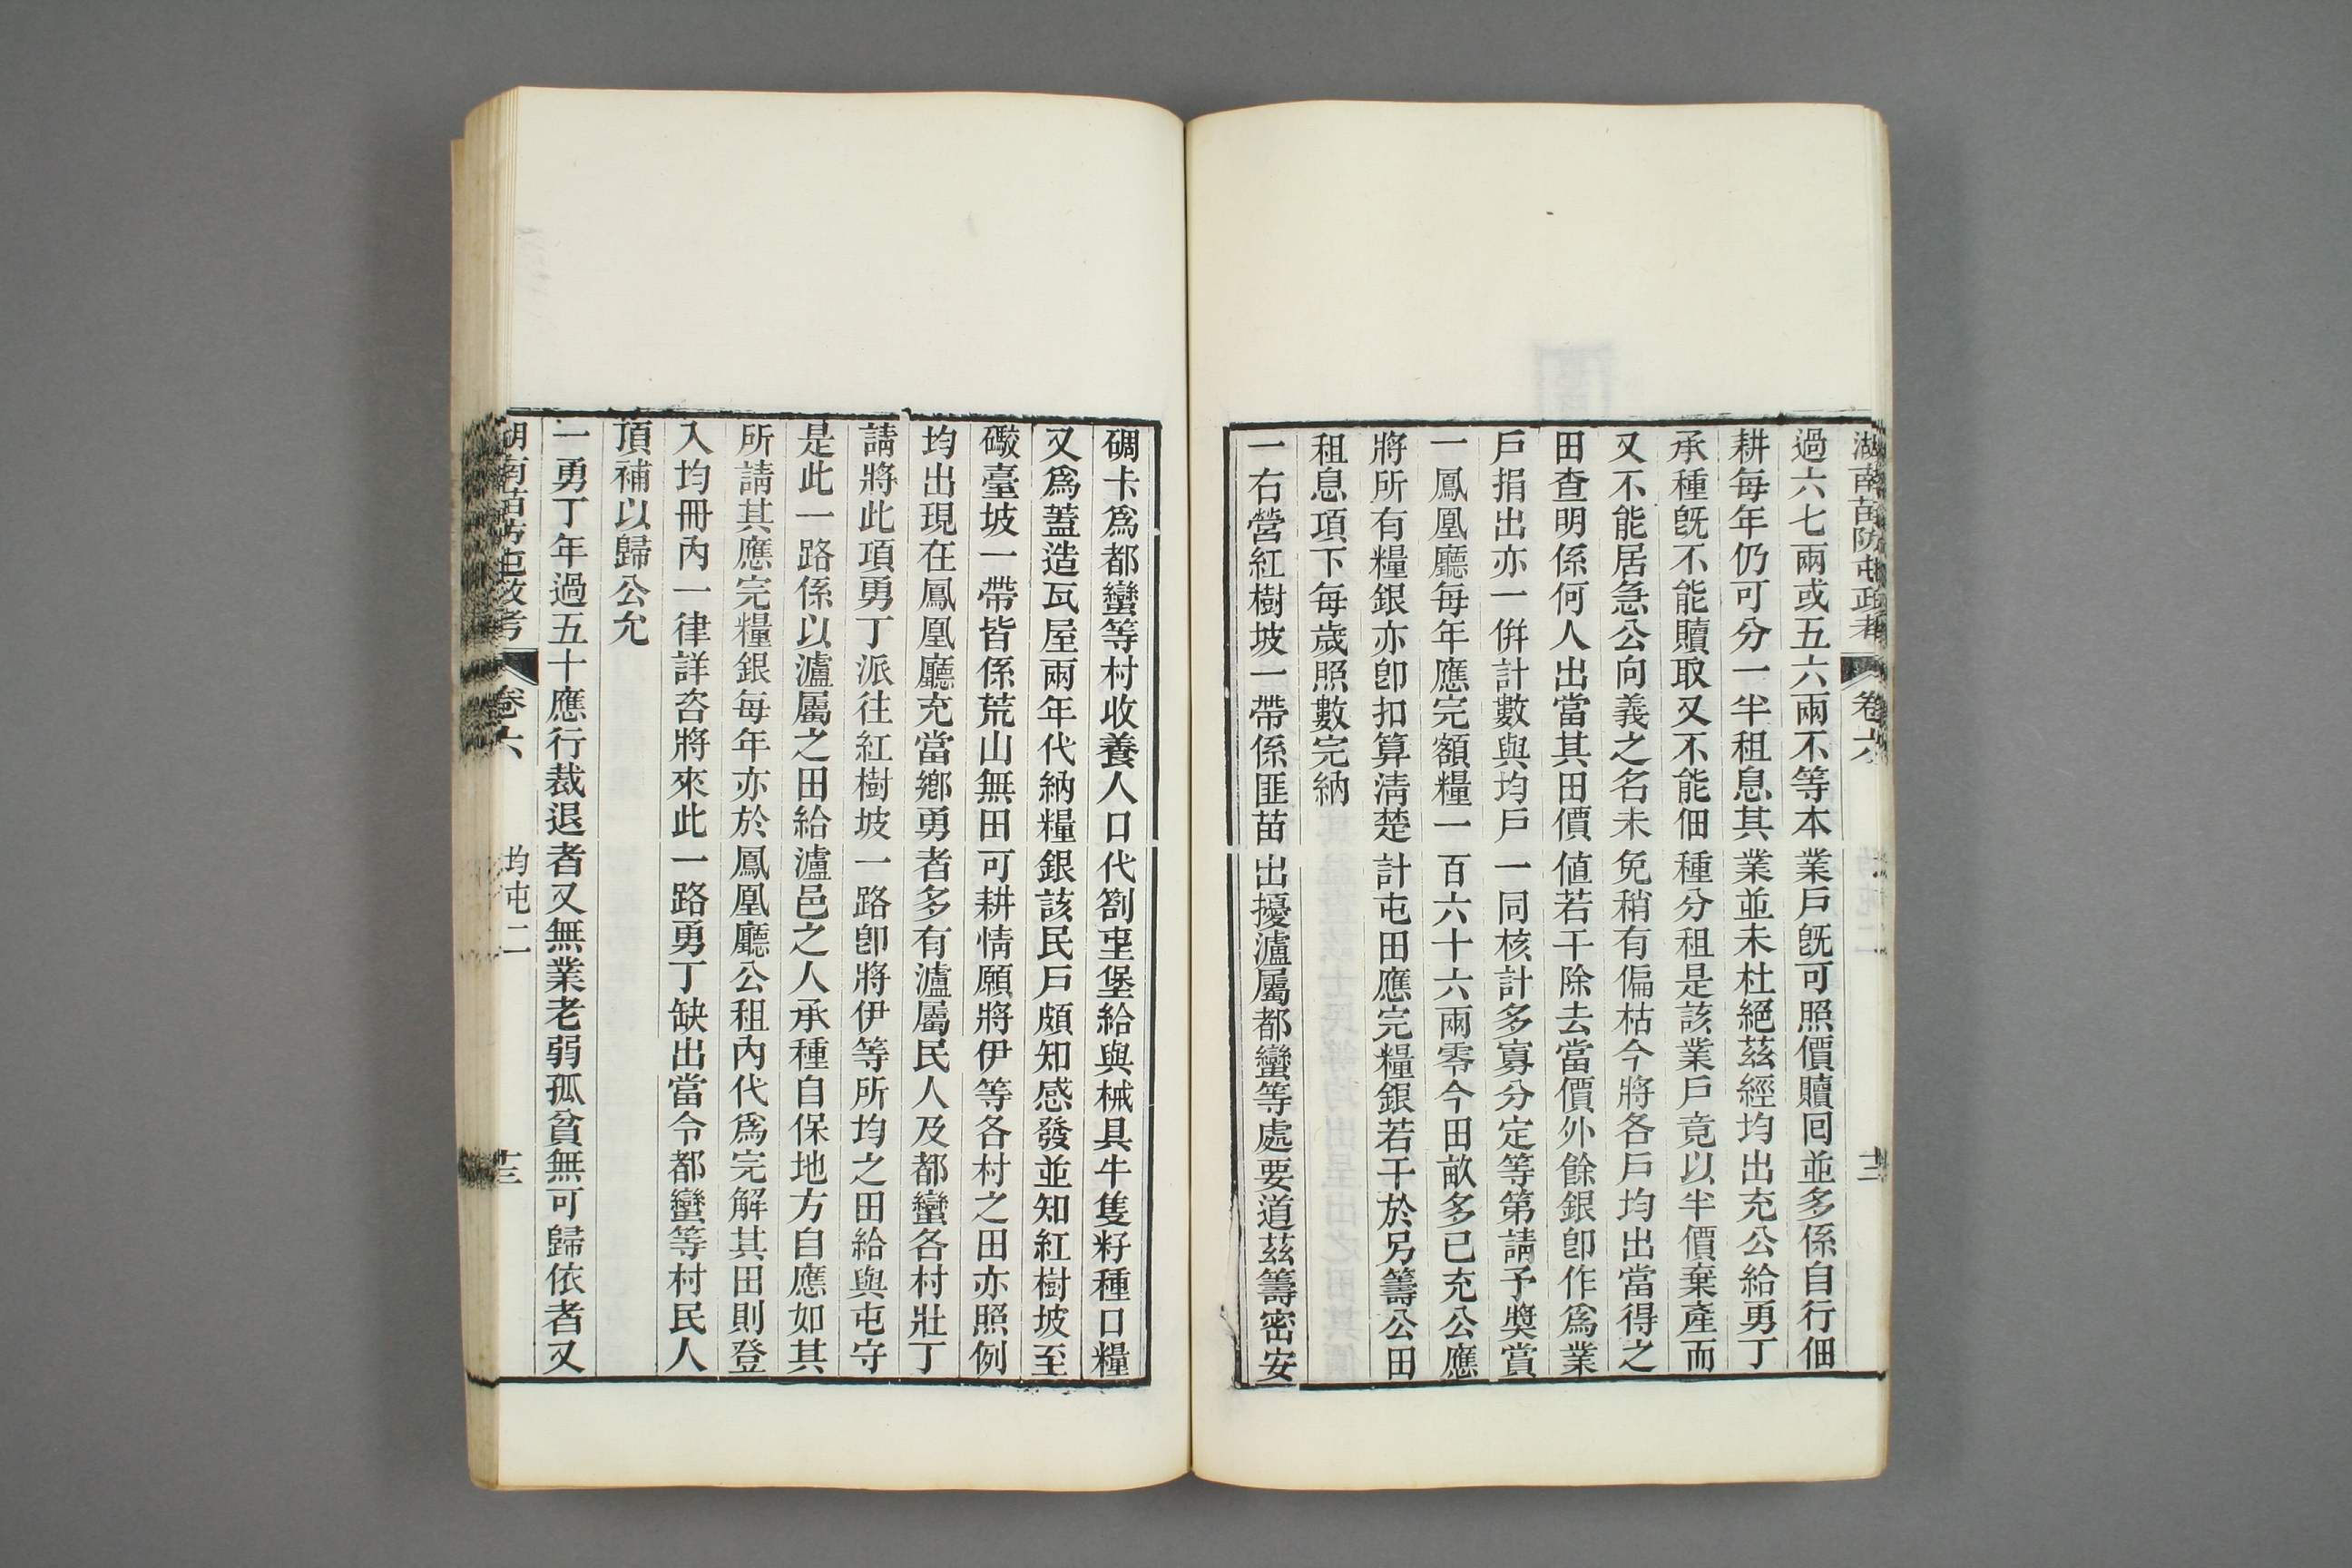 湖南苗防屯政考 卷六 十二
過六七兩或五六兩不等本業戶旣可照價贖回並多係自行佃
耕每年仍可分一半租息其業並未杜絕茲經均出充公給勇丁
承種旣不能贖取又不能佃種分租是該業戶竟以半價棄產而
又不能居急公向義之名未免稍有偏枯今將各戶均出當得之
田查明係何人出當其田價值若干除去當價外餘銀卽作爲業
戶捐出亦一倂計數與均戶一同核計多寡分定等第請予獎賞
一鳳凰廳每年應完額糧一百六十六兩零今田畝多已充公應
將所有糧銀亦卽扣算清楚計屯田應完糧銀若干於另籌公田
租息項下每歲照數完納
一右營紅樹坡一帶係匪苗出擾瀘屬都蠻等處要道茲籌密安
碉卡爲都蠻等村收養人口代劄屯堡給與械具牛隻籽種口糧
又爲蓋造瓦屋兩年代納糧銀該民戶頗知感發並知紅樹坡至
礮臺坡一帶皆係荒山無田可耕情願將伊等各村之田亦照例
均出現在鳳凰廳充當鄉勇者多有瀘屬民人及都蠻各村壯丁
請將此項勇丁派往紅樹坡一路卽將伊等所均之田給與屯守
是此一路係以瀘屬之田給瀘邑之人承種自保地方自應如其
所請其應完糧銀每年亦於鳳凰廳公租內代爲完解其田則登
入均冊內一律詳咨將來此一路勇丁缺出當令都蠻等村民人
頂補以歸公允
一勇丁年過五十應行裁退者又無業老弱孤貧無可歸依者又
湖南苗防屯政考 卷六 均屯二 十三